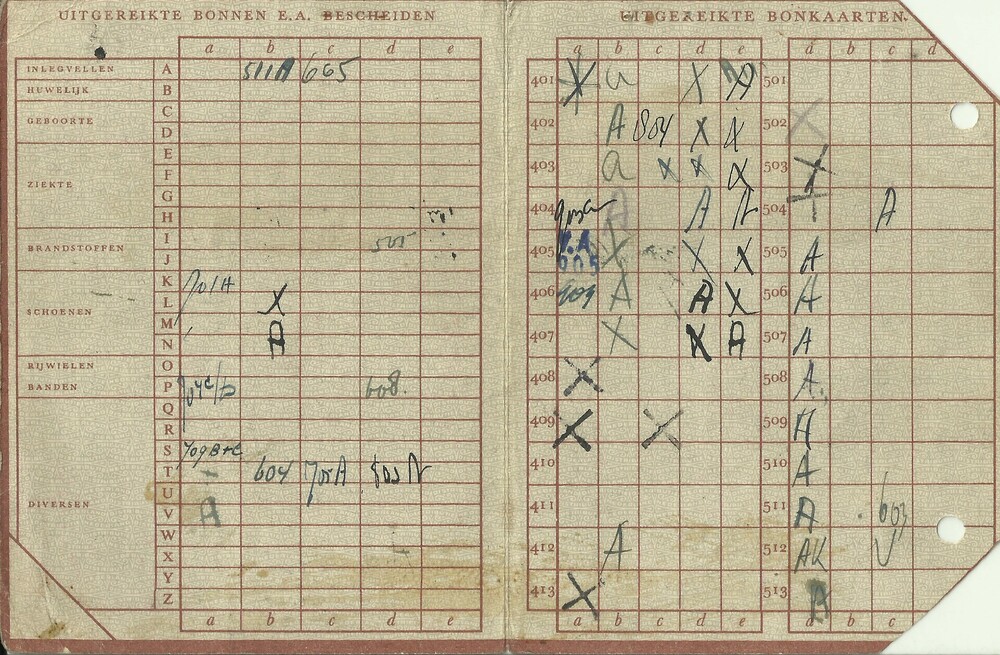 UITGEREIKTE BONNEN E.A. BESCHEIDEN
a b c d e
INLEGVELLEN A 511A 605
HUWELIJK B
C
GEBOORTE D
E
ZIEKTE F
G
H
I
BRANDSTOFFEN J 505
K 701A
SCHOENEN L X
M
N A
RIJWIELEN O
BANDEN P 608.
Q
R
S 709B+C
T 604 705A
U
DIVERSEN V A
W
X
Y
Z
a b c d e
UITGEREIKTE BONKAARTEN
a b c d e a b c d
401 X a X A 501
402 A 804 X X 502 X
403 a X X X 503 X
404 A A 504 A
405 X X X 505 A
406 A A X 506 A
407 X X A 507 A
408 X 508 A.
409 X X 509 A
410 510 A
411 511 A 603
412 A 512 AK
413 X 513 A
a b c d e a b c